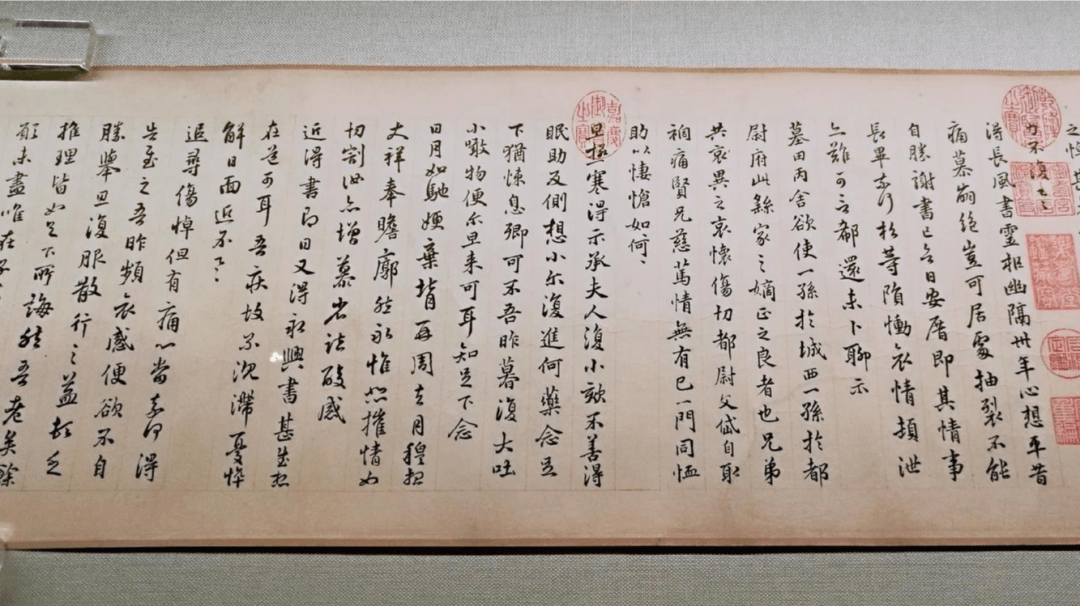 之
力不復一一
得長風書靈柩幽隔卅年心想平昔
痛慕崩絕豈可居處抽裂不能
自勝謝書已具日安厝即其情事
長畢奈何松等隕慟哀情頓泄
亦難可言都還未卜聊示
墓田丙舍欲使一孫於城西一孫於都
尉府此繇家之嫡正之良者也兄弟
共哀異之哀懷傷切都尉父自取
祠痛賢兄慈篤情無有已一門同恤
助以悽愴如何
旦極寒得示承夫人復小欬不善得
眠助及側想小尔復進何藥念足
下猶悚息卿可不吾昨暮復大吐
小噉物便尔旦来可耳知足下念
日月如馳嫂棄背再周去月穆松
大祥奉瞻廓然永惟悲摧情如
切割汝亦增慕省法酸感
近得書即日又得永興書甚慰
在邑可耳吾疾故爾沉滯憂悴
解日面近不具
追尋傷悼但有痛心當奈何得
告慰之吾昨頻哀感便欲不自
勝舉旦復服散行之益頓乏
推理皆如足下所誨然吾老矣餘
願未盡唯在子